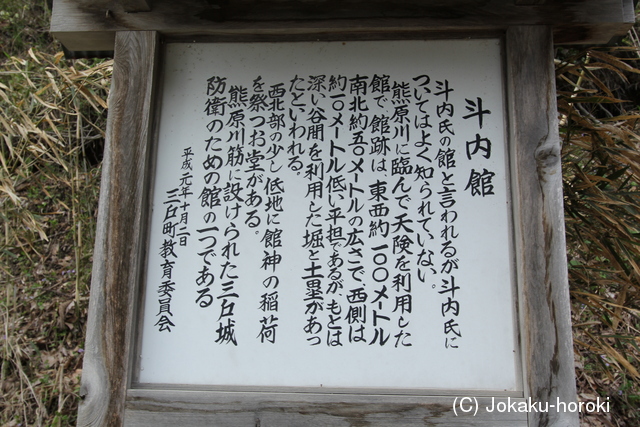 斗内館
斗内氏の館と言われるが斗内氏に
ついてはよく知られていない。
熊原川に臨んで天険を利用した
館で、館跡は、東西約一〇〇メートル
南北約五〇メートルの広さで、西側は
約一〇メートル低い平担であるが、もとは
深い谷間を利用した堀と土塁があっ
たといわれる。
西北部の少し低地に館神の稲荷
を祭つお堂がある。
熊原川筋に設けられた三戸城
防衛のための館の一つである
平成元年十月二日
三戸町教育委員会
(C) Jokaku-horoki